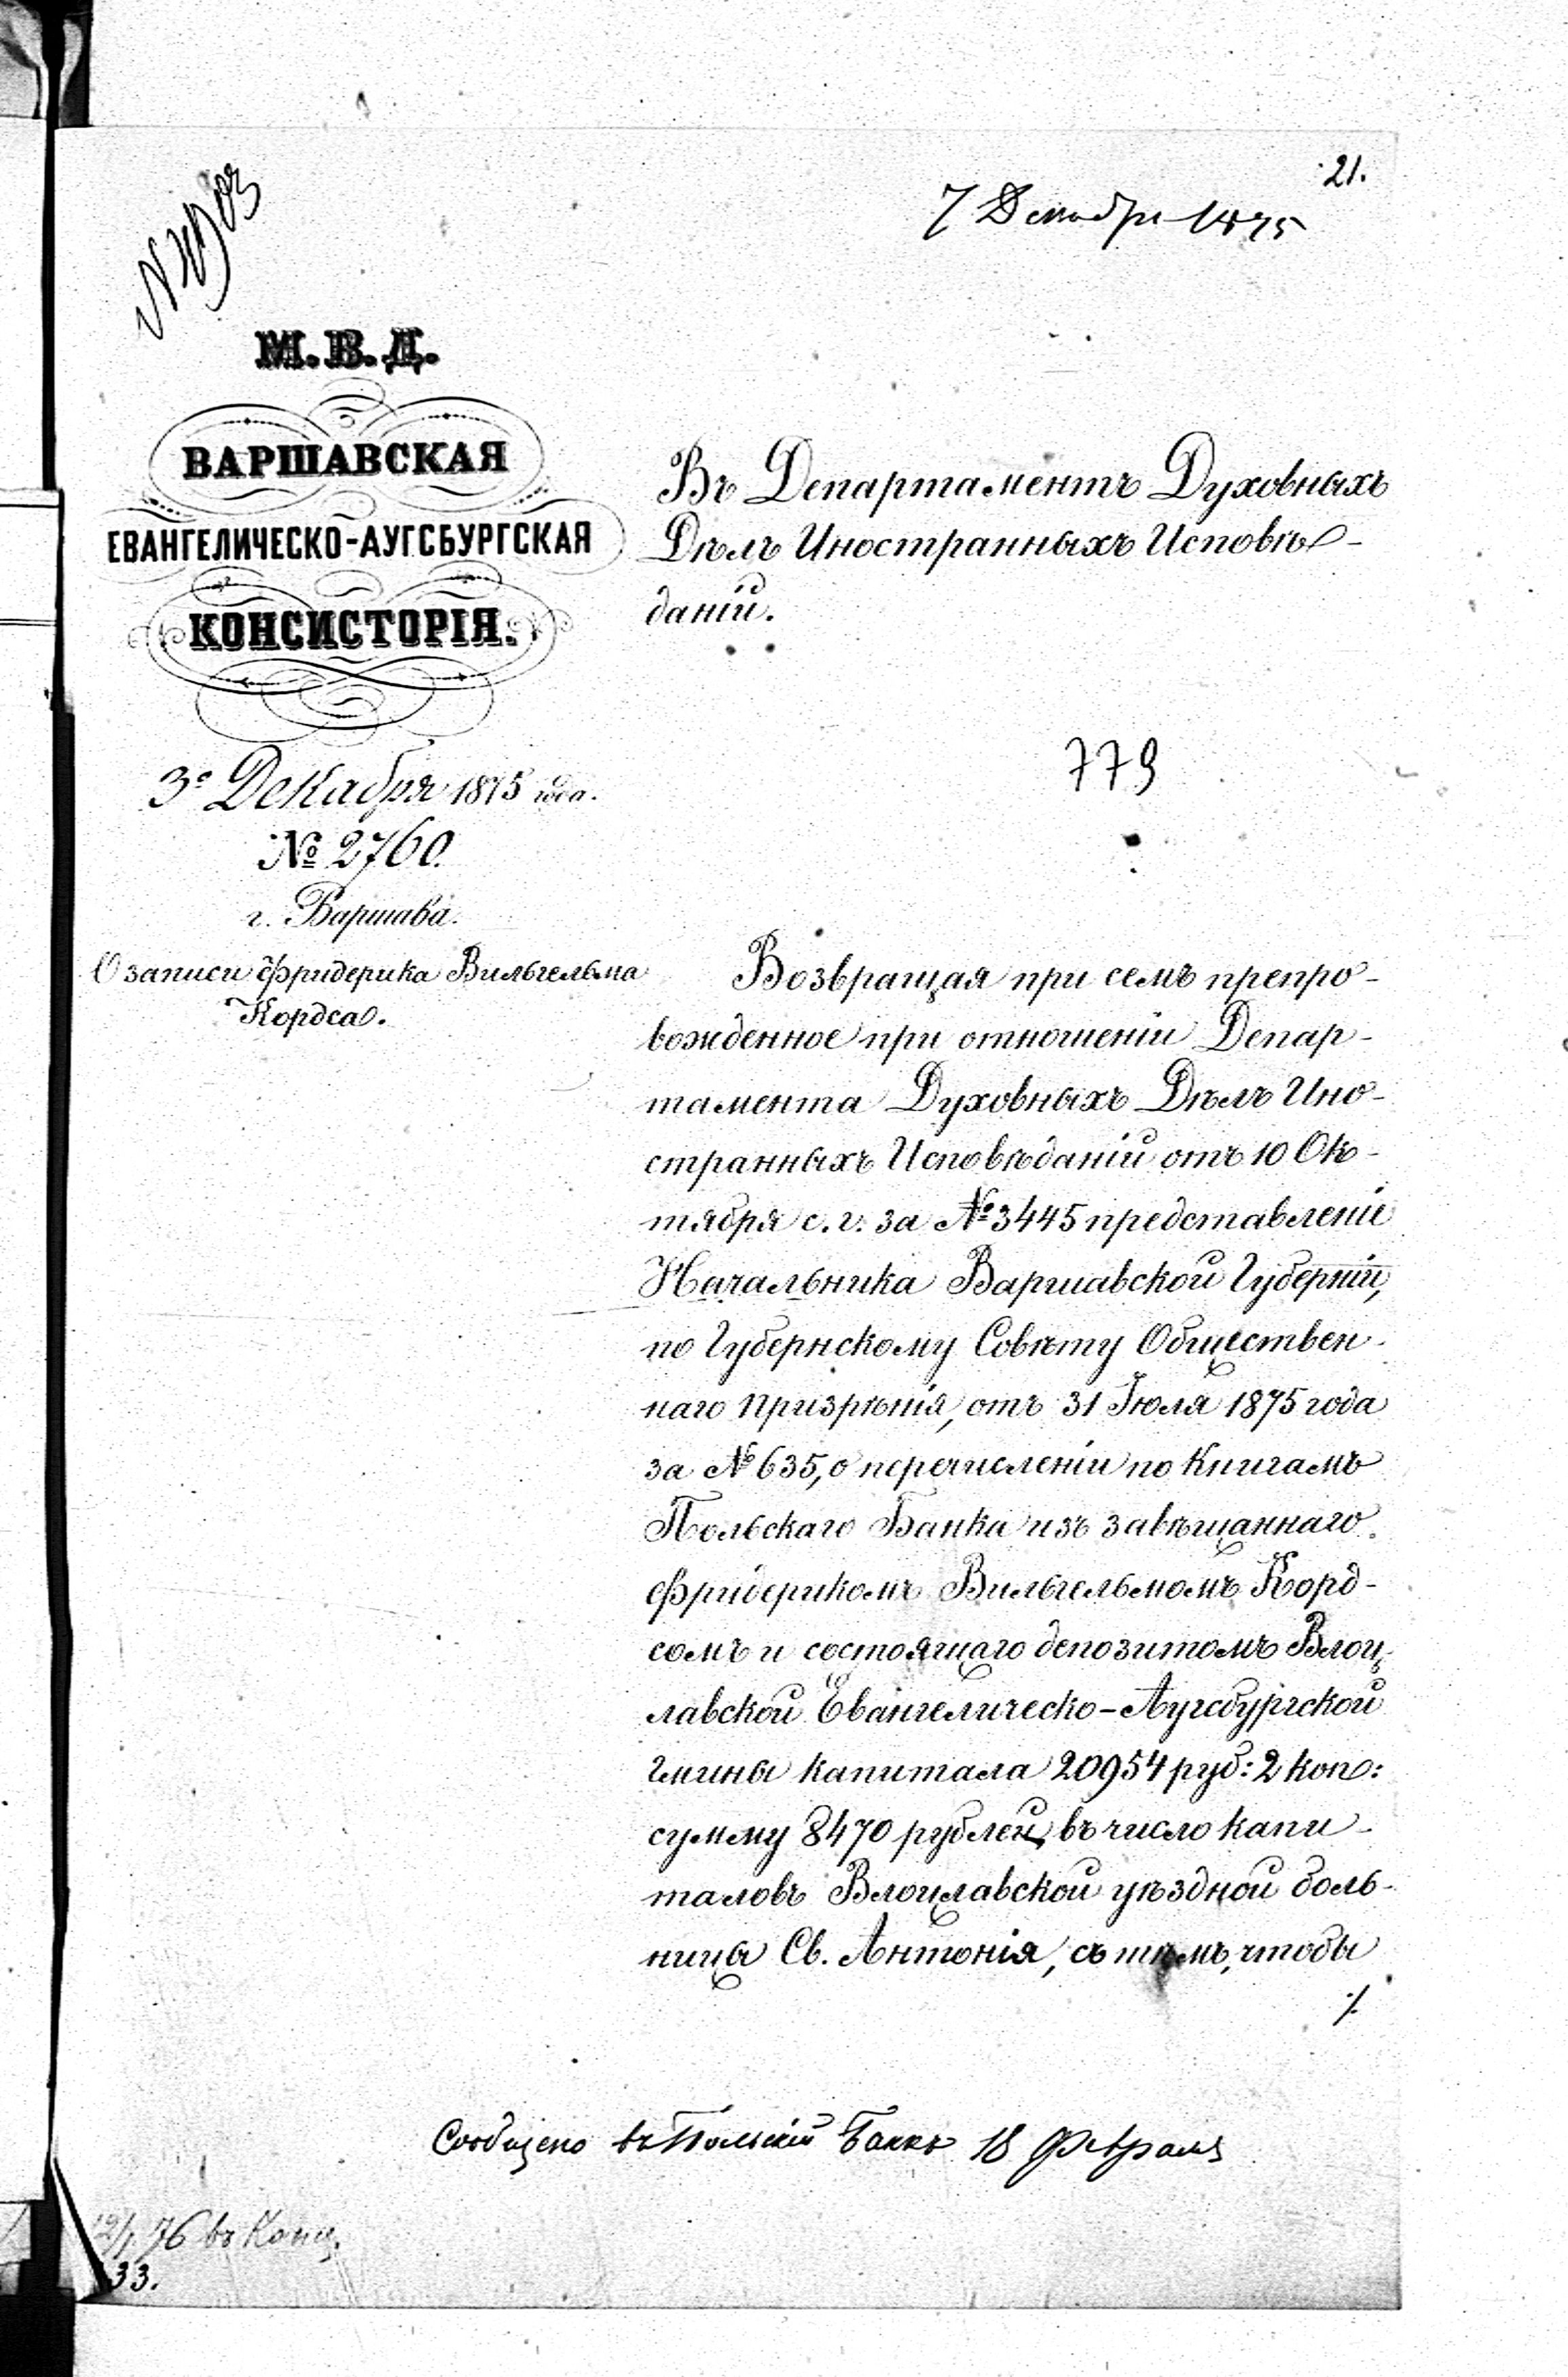 21.
7 Декабря 1875
М.В.Д.
ВАРШАВСКАЯ
ЕВАНГЕЛИЧЕСКО-АУГСБУРГСКАЯ
КОНСИСТОРІЯ.
3го Декабря 1875 года.
№ 2760.
г. Варшава.
О записи Фридерика Вильгельма
Кордса.
Въ Департаментъ Духовныхъ
Дѣлъ Иностранныхъ Исповѣ-
даній.
779
Возвращая при семъ препро-
вожденное при отношеніи Депар-
тамента Духовныхъ Дѣлъ Ино-
странныхъ Исповѣданій отъ 10 Ок-
тября с. г. за № 3445 представленіе
Начальника Варшавской Губерніи,
по Губернскому Совѣту Обществен-
наго Призрѣнія, отъ 31 Іюля 1875 года
за № 635, о перечисленіи по книгамъ
Польскаго Банка изъ завѣщаннаго
Фридерикомъ Вильгельмомъ Корд-
сомъ и состоящаго депозитомъ Влоц-
лавской Евангелическо-Аугсбургской
гмины капитала 20954 руб: 2 коп:
сумму 8470 рублей, въ число капи-
таловъ Влоцлавской уѣздной боль-
ницы Св. Антонія, съ тѣмъ, чтобы
./.
Сообщено въ Польскій Банкъ 18 Февраля
76 въ
33.